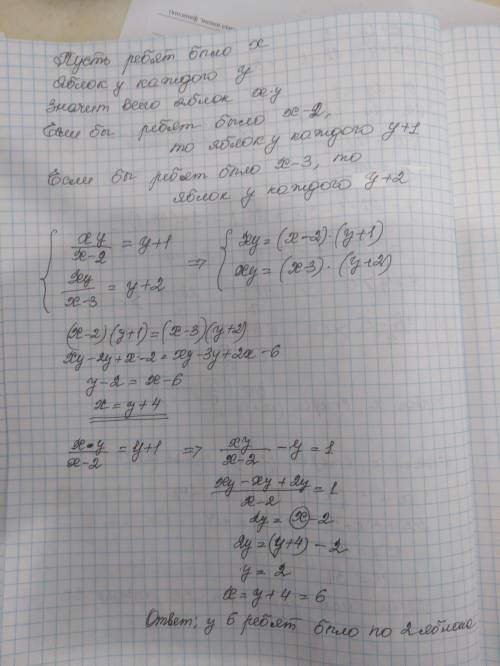 Пусть ребят было x
Яблок у каждого y
Значит всего яблок x·y
Если бы ребят было x-2,
то яблок у каждого y+1
Если бы ребят было x-3, то
яблок у каждого y+2
{ xy/(x-2) = y+1 => { xy = (x-2)·(y+1)
xy/(x-3) = y+2 xy = (x-3)·(y+2)
(x-2)(y+1) = (x-3)(y+2)
xy-2y+x-2 = xy-3y+2x-6
y-2 = x-6
x = y+4
x·y/(x-2) = y+1 => xy/(x-2) - y = 1
(xy-xy+2y)/(x-2) = 1
2y = x-2
2y = (y+4)-2
y = 2
x = y+4 = 6
Ответ: у 6 ребят было по 2 яблока